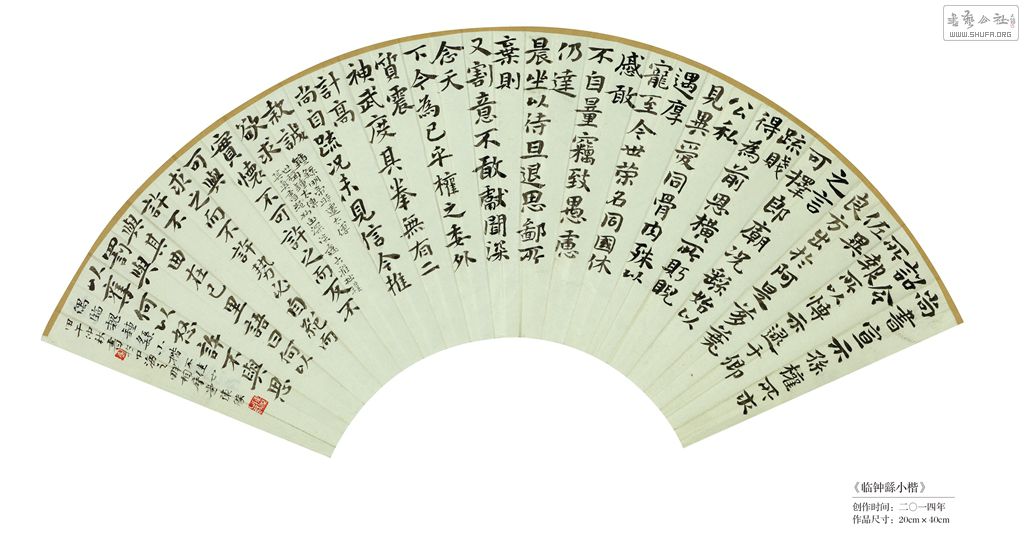 尚書宣示孫權所求
詔令
所報所以博示逮于卿
佐
良方出於阿是芻蕘
之言
可擇郎廟況繇始以
疏賤
得為前恩橫所眄睨
公私
見異愛同骨肉殊以
遇厚
寵至今世榮名同國休
慼敢
不自量竊致愚慮
仍達
晨坐以待旦退思鄙所
棄則
又割意不敢獻聞深
念天
下今為已平權之委外
質震
神武度其拳無有二
計高
尚自疏況未見信今推
款誠
欲求
實懷不可許之而反不
可與
求之而不許勢必自絕而
許不
與其曲在己里語曰何以
罰與
以奪何以怒許不與思
書藝公社
WWW.SHUFA.ORG
《临钟繇小楷》
创作时间：二〇一四年
作品尺寸：20cm×40cm